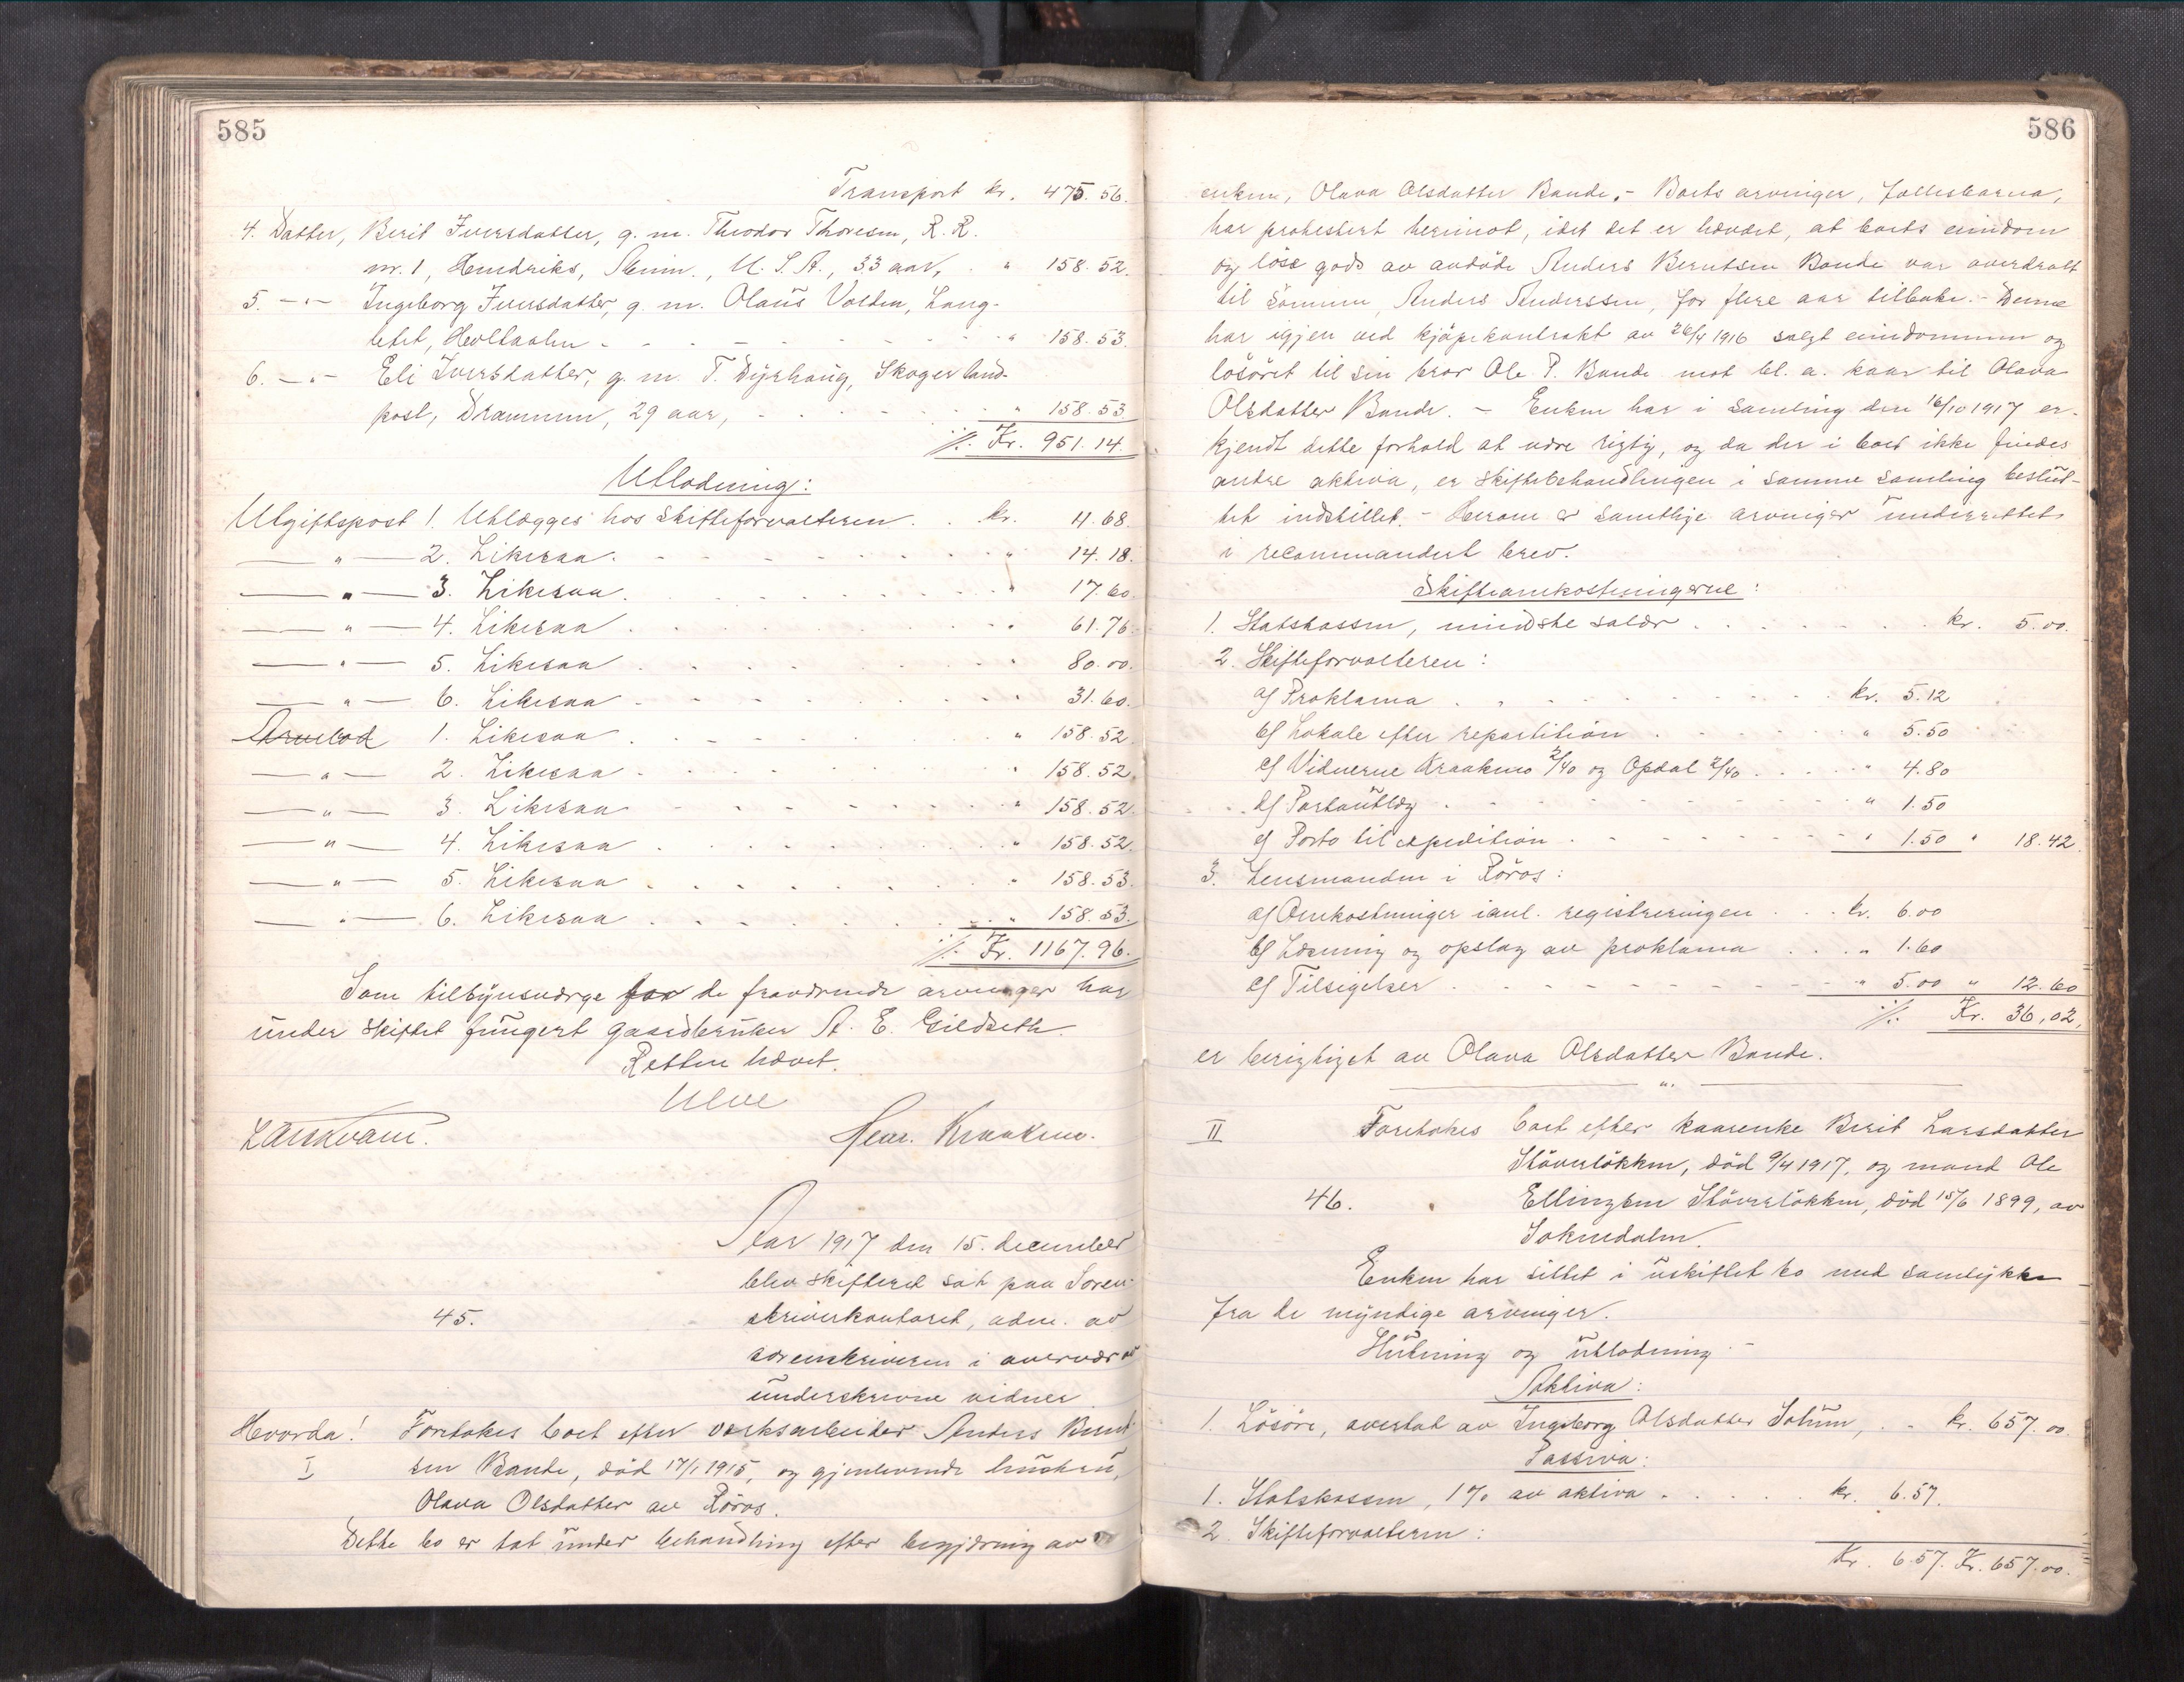 585
Transport kr. 475.56.
4. Datter, Berit Iversdatter, g. m. Theodor Thoresen, R. R.
nr. 1, Hendriks, Minn., U. S. A., 33 aar, " 158.52.
5. -"- Ingeborg Iversdatter, g. m. Olaus Volden, Lang-
letet, Holtaalen - - - - - " 158.53.
6. -"- Eli Iversdatter, g. m. T. Dyrhaug, Skoger land-
post, Drammen, 29 aar, - - - - " 158.53
./. Kr. 951.14.
Utlodning:
Utgiftspost 1. Utlægges hos skifteforvalteren . . kr. 11.68.
—"— 2. Likesaa . - - - - " 14.18.
—"— 3. Likesaa . . . . . " 17.60.
—"— 4. Likesaa . . . . . " 61.76.
—"— 5. Likesaa . . . . . " 80.00.
—"— 6. Likesaa . - - - - " 31.60.
Arvelod 1. Likesaa . - - - - " 158.52
—"— 2. Likesaa . - - - - " 158.52.
—"— 3. Likesaa - - - - - " 158.52.
—"— 4. Likesaa . . . . . " 158.52.
—"— 5. Likesaa . . . . . " 158.53.
—"— 6. Likesaa . . . . . " 158.53.
./. Kr. 1167.96.
Som tilsynsværge for de fraværende arvinger har
under skiftet fungert gaardbruker A. E. Gildseth.
Retten hævet.
Ulve
Henr. Kraaknes.
Aar 1917 den 15. december
blev skifteret sat paa Soren-
45.
skriverkontoret, adm. av
sorenskriveren i overvær av
underskrevne vidner
Hvorda! Foretokes boet efter verksarbeider Anders Bernt-
I sen Bande, död 17/1 1915, og gjenlevende hustru,
Olava Olsdatter av Röros.
Dette bo er tat under behandling efter begjæring av
586
enken, Olava Olsdatter Bande. - Boets arvinger, fællesbarna,
har protestert herimot, idet det er hævdet, at boets eiendom
og löse gods av avdöde Anders Berntsen Bande var overdratt
til sönnen, Anders Anderssen, for flere aar tilbake. - Denne
har igjen ved kjöpekontrakt av 26/4 1916 solgt eiendommen og
lösöret til sin bror Ole P. Bande mot bl. a. kaar til Olava
Olsdatter Bande. - Enken har i samling den 16/10 1917 er-
kjendt dette forhold at være rigtig, og da der i boet ikke findes
andre aktiva, er skiftebehandlingen i samme samling beslut-
tet indstillet. - Herom er samtlige arvinger underrettet
i recommandert brev.
Skifteomkostningerne:
1. Statskassen, mindste salær . . . . . . kr. 5.00.
2. Skifteforvalteren:
a/ Proklama . - - - - kr. 5.12
b/ Lokale efter repartition . - - - " 5.50
c/ Vidnerne Kraaknes 2/40 og Opdal 2/40 . . . . " 4.80
d/ Portoutlæg . - - - - " 1.50
e/ Porto til expedition . - - - - " 1.50 " 18.42.
3. Lensmanden i Röros:
a/ Omkostninger ianl. registreringen . . . kr. 6.00
b/ Læsning og opslag av proklama . . . . " 1.60
c/ Tilsigelser . - - - - " 5.00 " 12.60
./. Kr. 36,02,
er berigtiget av Olava Olsdatter Bande.
—"—
II Foretokes boet efter kaarenke Berit Larsdatter
Stöverlökken, död 9/4 1917, og mand Ole
46. Ellingsen Stöverlökken, död 15/6 1899, av
Soknedalen.
Enken har sittet i uskiftet bo med samtykke
fra de myndige arvinger.
Slutning og utlodning. -
Aktiva:
1. Lösöre, overtat av Ingeborg Olsdatter Solum, . - kr. 657.00.
Passiva:
1. Statskassen, 1% av aktiva . . . . . kr. 6.57.
2. Skifteforvalteren:
Kr. 6.57. Kr. 657.00.